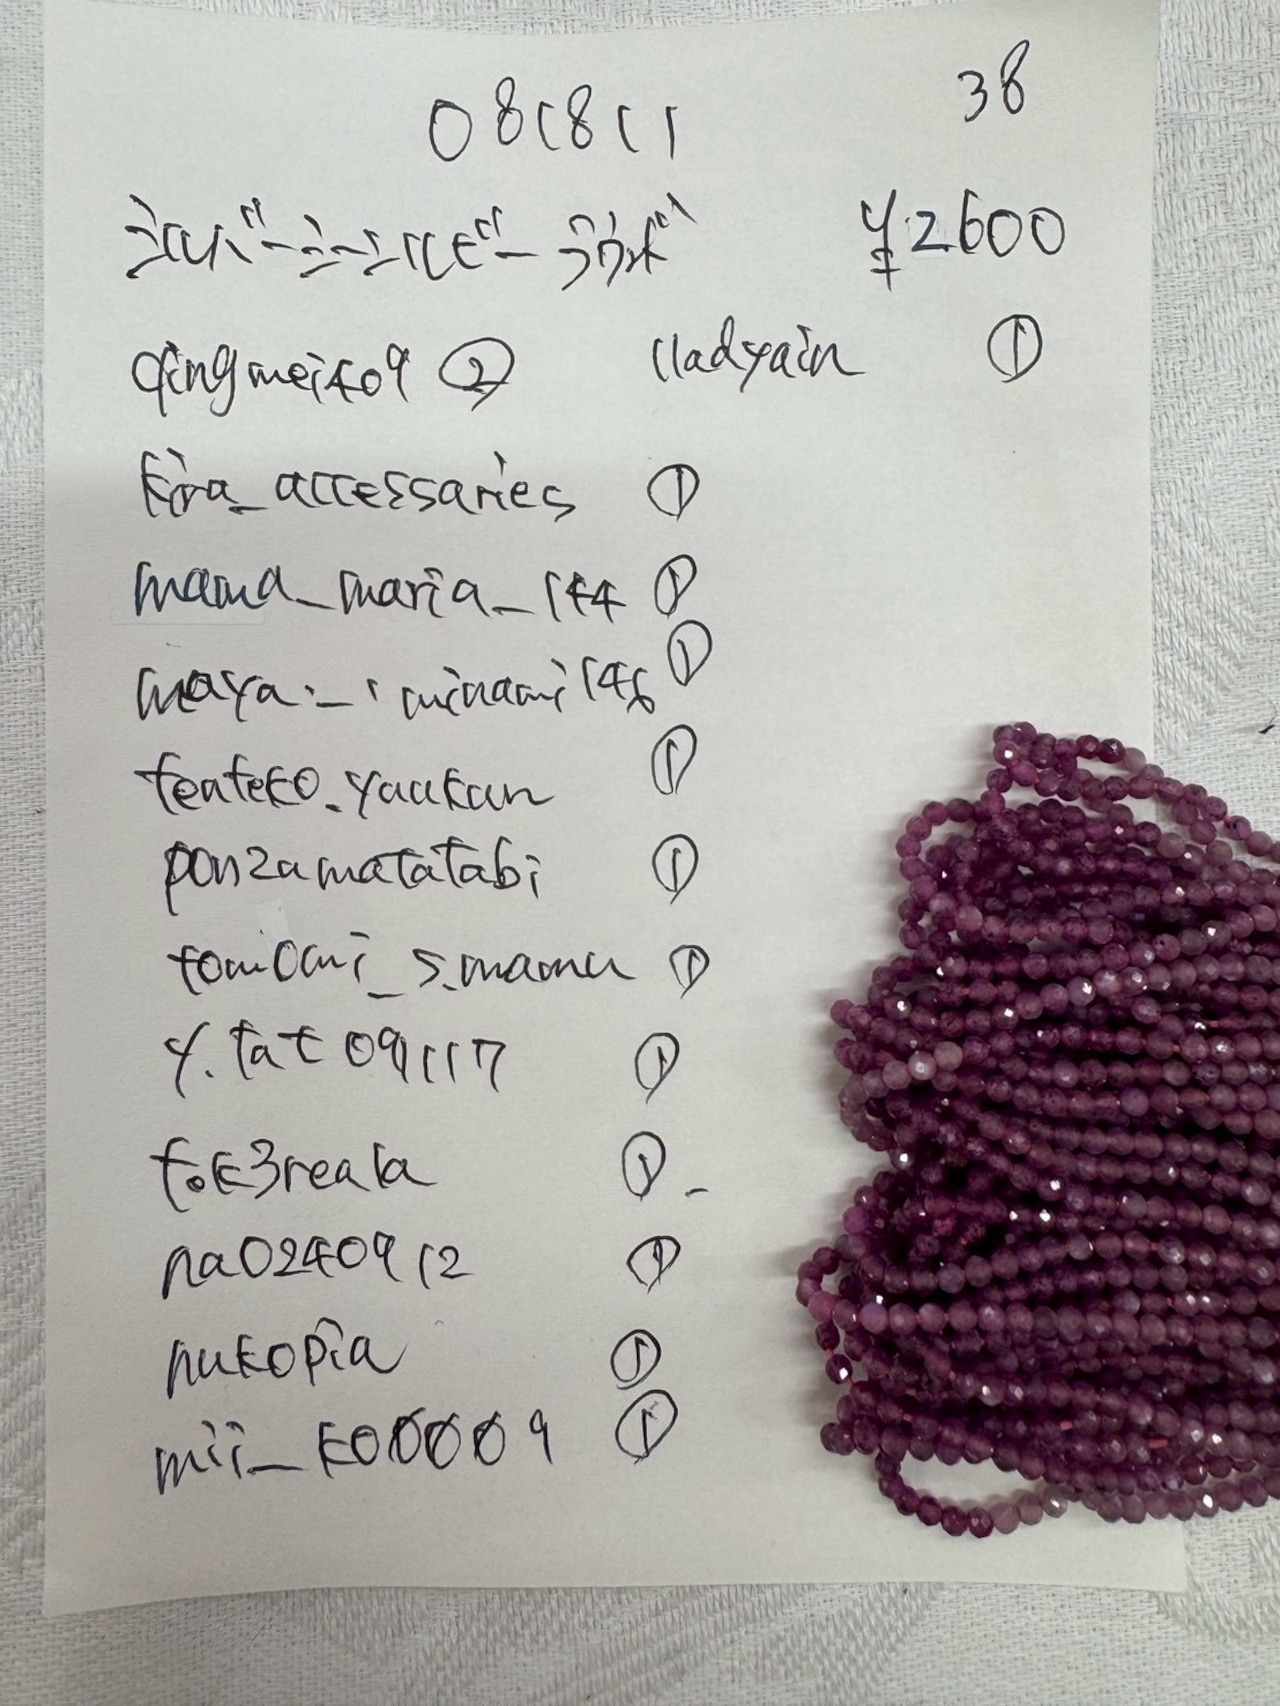 081811 38
シルバーシーンルビーラウンド ¥2600
qingmeiko9 ② lladyain ①
kira_accessaries ①
mama_maria_144 ①
maya._.minami146 ①
teateko.yuukun ①
ponzamatatabi ①
①
y.tat091117 ①
tok3reala ①
na0240912 ①
nukopia ①
mii_k00009 ①